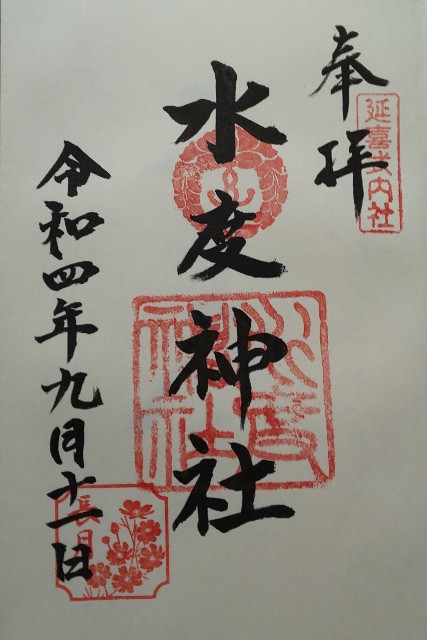 奉拝
延喜式内社
水度神社
水度神社
令和四年九月十一日
長月